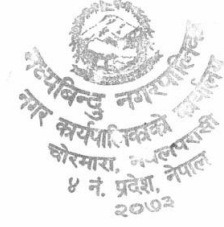 मध्यबिन्दु नगरपालिका
नगर कार्यपालिकाको कार्यालय
चोरमारा, नवलपरासी
४ नं. प्रदेश, नेपाल
२०७३